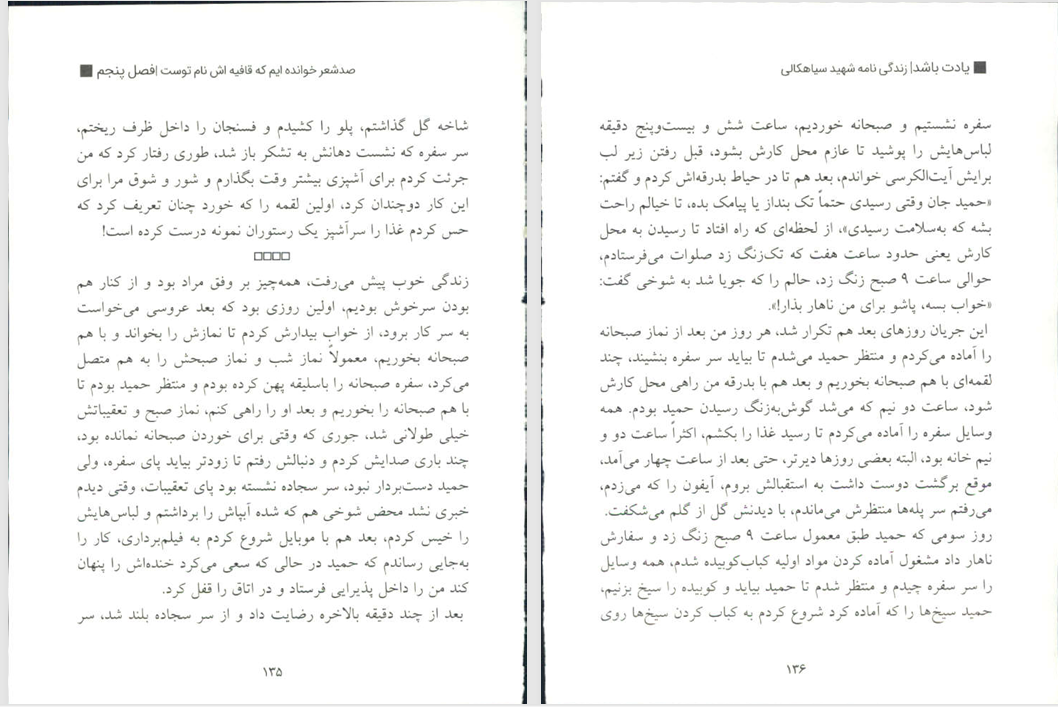 صدشعر خوانده ایم که قافیه اش نام توست |فصل پنجم
شاخه گل گذاشتم، پلو را کشیدم و فسنجان را داخل ظرف ریختم،
سر سفره که نشست دهانش به تشکر باز شد، طوری رفتار کرد که من
جرئت کردم برای آشپزی بیشتر وقت بگذارم و شور و شوق مرا برای
این کار دوچندان کرد، اولین لقمه را که خورد چنان تعریف کرد که
حس کردم غذا را سرآشپز یک رستوران نمونه درست کرده است!
□□□□
زندگی خوب پیش می‌رفت، همه‌چیز بر وفق مراد بود و از کنار هم
بودن سرخوش بودیم، اولین روزی بود که بعد عروسی می‌خواست
به سر کار برود، از خواب بیدارش کردم تا نمازش را بخواند و با هم
صبحانه بخوریم، معمولاً نماز شب و نماز صبحش را به هم متصل
می‌کرد، سفره صبحانه را باسلیقه پهن کرده بودم و منتظر حمید بودم تا
با هم صبحانه را بخوریم و بعد او را راهی کنم، نماز صبح و تعقیباتش
خیلی طولانی شد، جوری که وقتی برای خوردن صبحانه نمانده بود،
چند باری صدایش کردم و دنبالش رفتم تا زودتر بیاید پای سفره، ولی
حمید دست‌بردار نبود، سر سجاده نشسته بود پای تعقیبات، وقتی دیدم
خبری نشد محض شوخی هم که شده آبپاش را برداشتم و لباس‌هایش
را خیس کردم، بعد هم با موبایل شروع کردم به فیلم‌برداری، کار را
به‌جایی رساندم که حمید در حالی که سعی می‌کرد خنده‌اش را پنهان
کند من را داخل پذیرایی فرستاد و در اتاق را قفل کرد.
بعد از چند دقیقه بالاخره رضایت داد و از سر سجاده بلند شد، سر
۱۳۵
یادت باشد| زندگی نامه شهید سیاهکالی
سفره نشستیم و صبحانه خوردیم، ساعت شش و بیست‌وپنج دقیقه
لباس‌هایش را پوشید تا عازم محل کارش بشود، قبل رفتن زیر لب
برایش آیت‌الکرسی خواندم، بعد هم تا در حیاط بدرقه‌اش کردم و گفتم:
«حمید جان وقتی رسیدی حتماً تک بنداز یا پیامک بده، تا خیالم راحت
بشه که به‌سلامت رسیدی»، از لحظه‌ای که راه افتاد تا رسیدن به محل
کارش یعنی حدود ساعت هفت که تک‌زنگ زد صلوات می‌فرستادم،
حوالی ساعت ۹ صبح زنگ زد، حالم را که جویا شد به شوخی گفت:
«خواب بسه، پاشو برای من ناهار بذار!».
این جریان روزهای بعد هم تکرار شد، هر روز من بعد از نماز صبحانه
را آماده می‌کردم و منتظر حمید می‌شدم تا بیاید سر سفره بنشیند، چند
لقمه‌ای با هم صبحانه بخوریم و بعد هم با بدرقه من راهی محل کارش
شود، ساعت دو نیم که می‌شد گوش‌به‌زنگ رسیدن حمید بودم. همه
وسایل سفره را آماده می‌کردم تا رسید غذا را بکشم، اکثراً ساعت دو و
نیم خانه بود، البته بعضی روزها دیرتر، حتی بعد از ساعت چهار می‌آمد،
موقع برگشت دوست داشت به استقبالش بروم، آیفون را که می‌زدم،
می‌رفتم سر پله‌ها منتظرش می‌ماندم، با دیدنش گل از گلم می‌شکفت.
روز سومی که حمید طبق معمول ساعت ۹ صبح زنگ زد و سفارش
ناهار داد مشغول آماده کردن مواد اولیه کباب‌کوبیده شدم، همه وسایل
را سر سفره چیدم و منتظر شدم تا حمید بیاید و کوبیده را سیخ بزنیم،
حمید سیخ‌ها را که آماده کرد شروع کردم به کباب کردن سیخ‌ها روی
۱۳۶